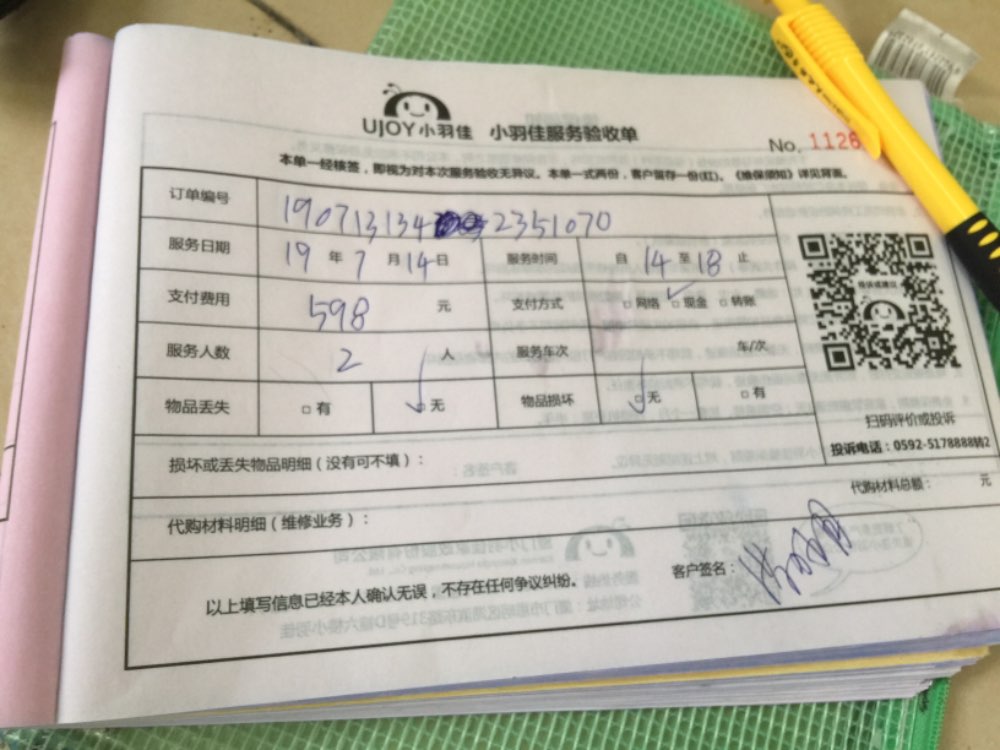 UJOY小羽佳 小羽佳服务验收单
No. 1126
本单一经核签，即视为对本次服务验收无异议。本单一式两份，客户留存一份(红)。《维保须知》详见背面。
订单编号 190713134 2351070
服务日期 19 年 7 月 14 日 服务时间 自 14 至 18 止
支付费用 598 元 支付方式 □ 网络 □ 现金 □ 转账
服务人数 2 人 服务车次 车/次
物品丢失 □ 有 □ 无 物品损坏 □ 无 □ 有
投诉或建议
扫码评价或投诉
投诉电话：0592-5178888转2
损坏或丢失物品明细（没有可不填）：
代购材料总额： 元
代购材料明细（维修业务）：
以上填写信息已经本人确认无误，不存在任何争议纠纷。 客户签名：